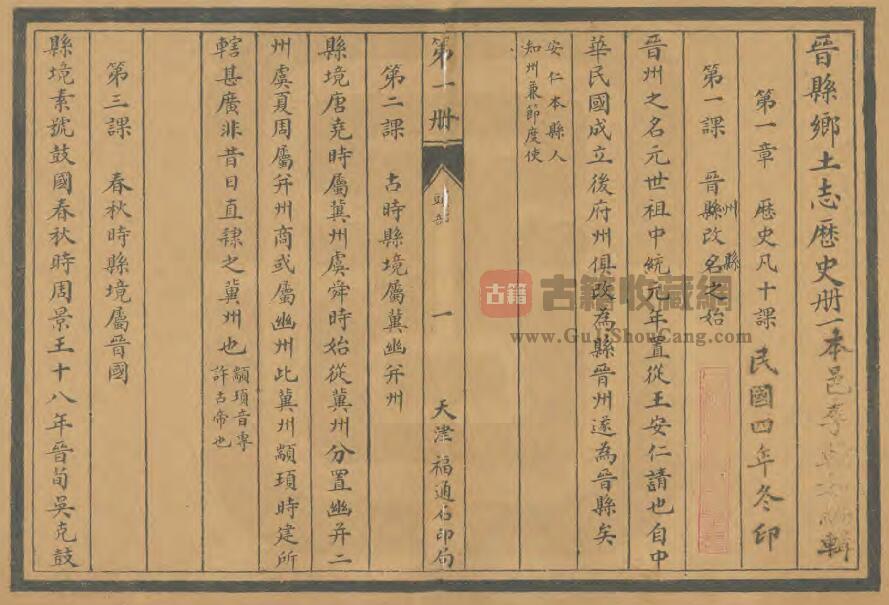 晉縣鄉土志歷史册一本邑李輯
第一章 歷史凡十課 民國四年冬印
第一課 晉縣改名之始
州 縣
晉州之名元世祖中統元年置從王安仁請也自中
華民國成立後府州俱改為縣晉州遂為晉縣矣
安仁本縣人
知州兼節度使
第一册 一 天津福通石印局
第二課 古時縣境屬冀幽并州
縣境唐堯時屬冀州虞舜時始從冀州分置幽并二
州虞夏周屬并州商或屬幽州此冀州顓頊時建所
轄甚廣非昔日直隸之冀州也
顓頊音專
許古帝也
第三課 春秋時縣境屬晉國
縣境素號鼓國春秋時周景王十八年晉荀吳克鼓
古籍 古籍收藏網
www.GuJiShouCang.com